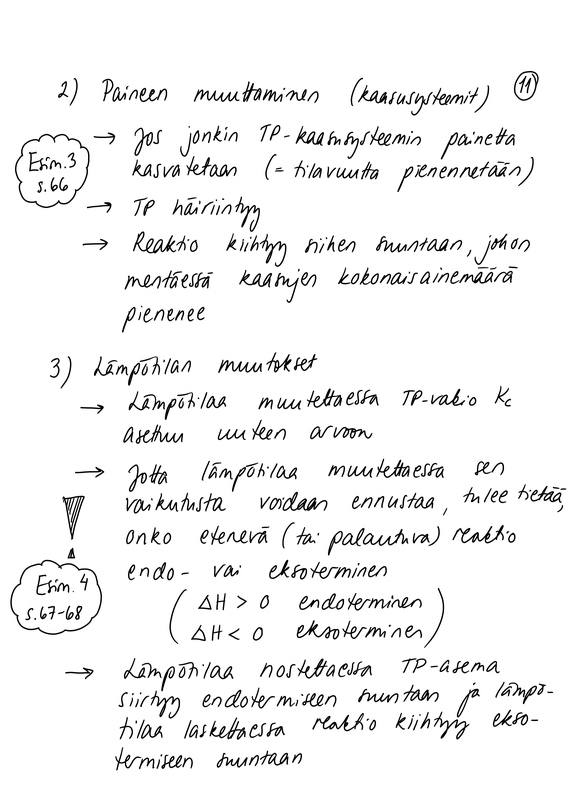 2) Paineen muuttaminen (kaasusysteemit) 11
→ Jos jonkin TP-kaasusysteemin painetta
kasvatetaan (= tilavuutta pienennetään)
Esim.3
s.66
→ TP häiriintyy
→ Reaktio kiihtyy siihen suuntaan, johon
mentäessä kaasujen kokonaisainemäärä
pienenee
3) Lämpötilan muutokset
→ Lämpötilaa muutettaessa TP-vakio Kc
asettuu uuteen arvoon
→ Jotta lämpötilaa muutettaessa sen
vaikutusta voidaan ennustaa, tulee tietää,
onko etenevä (tai palautuva) reaktio
endo- vai eksoterminen
!
Esim. 4
s.67-68
(ΔH > 0 endoterminen
ΔH < 0 eksoterminen)
→ Lämpötilaa nostettaessa TP-asema
siirtyy endotermiseen suuntaan ja lämpö-
tilaa laskettaessa reaktio kiihtyy ekso-
termiseen suuntaan